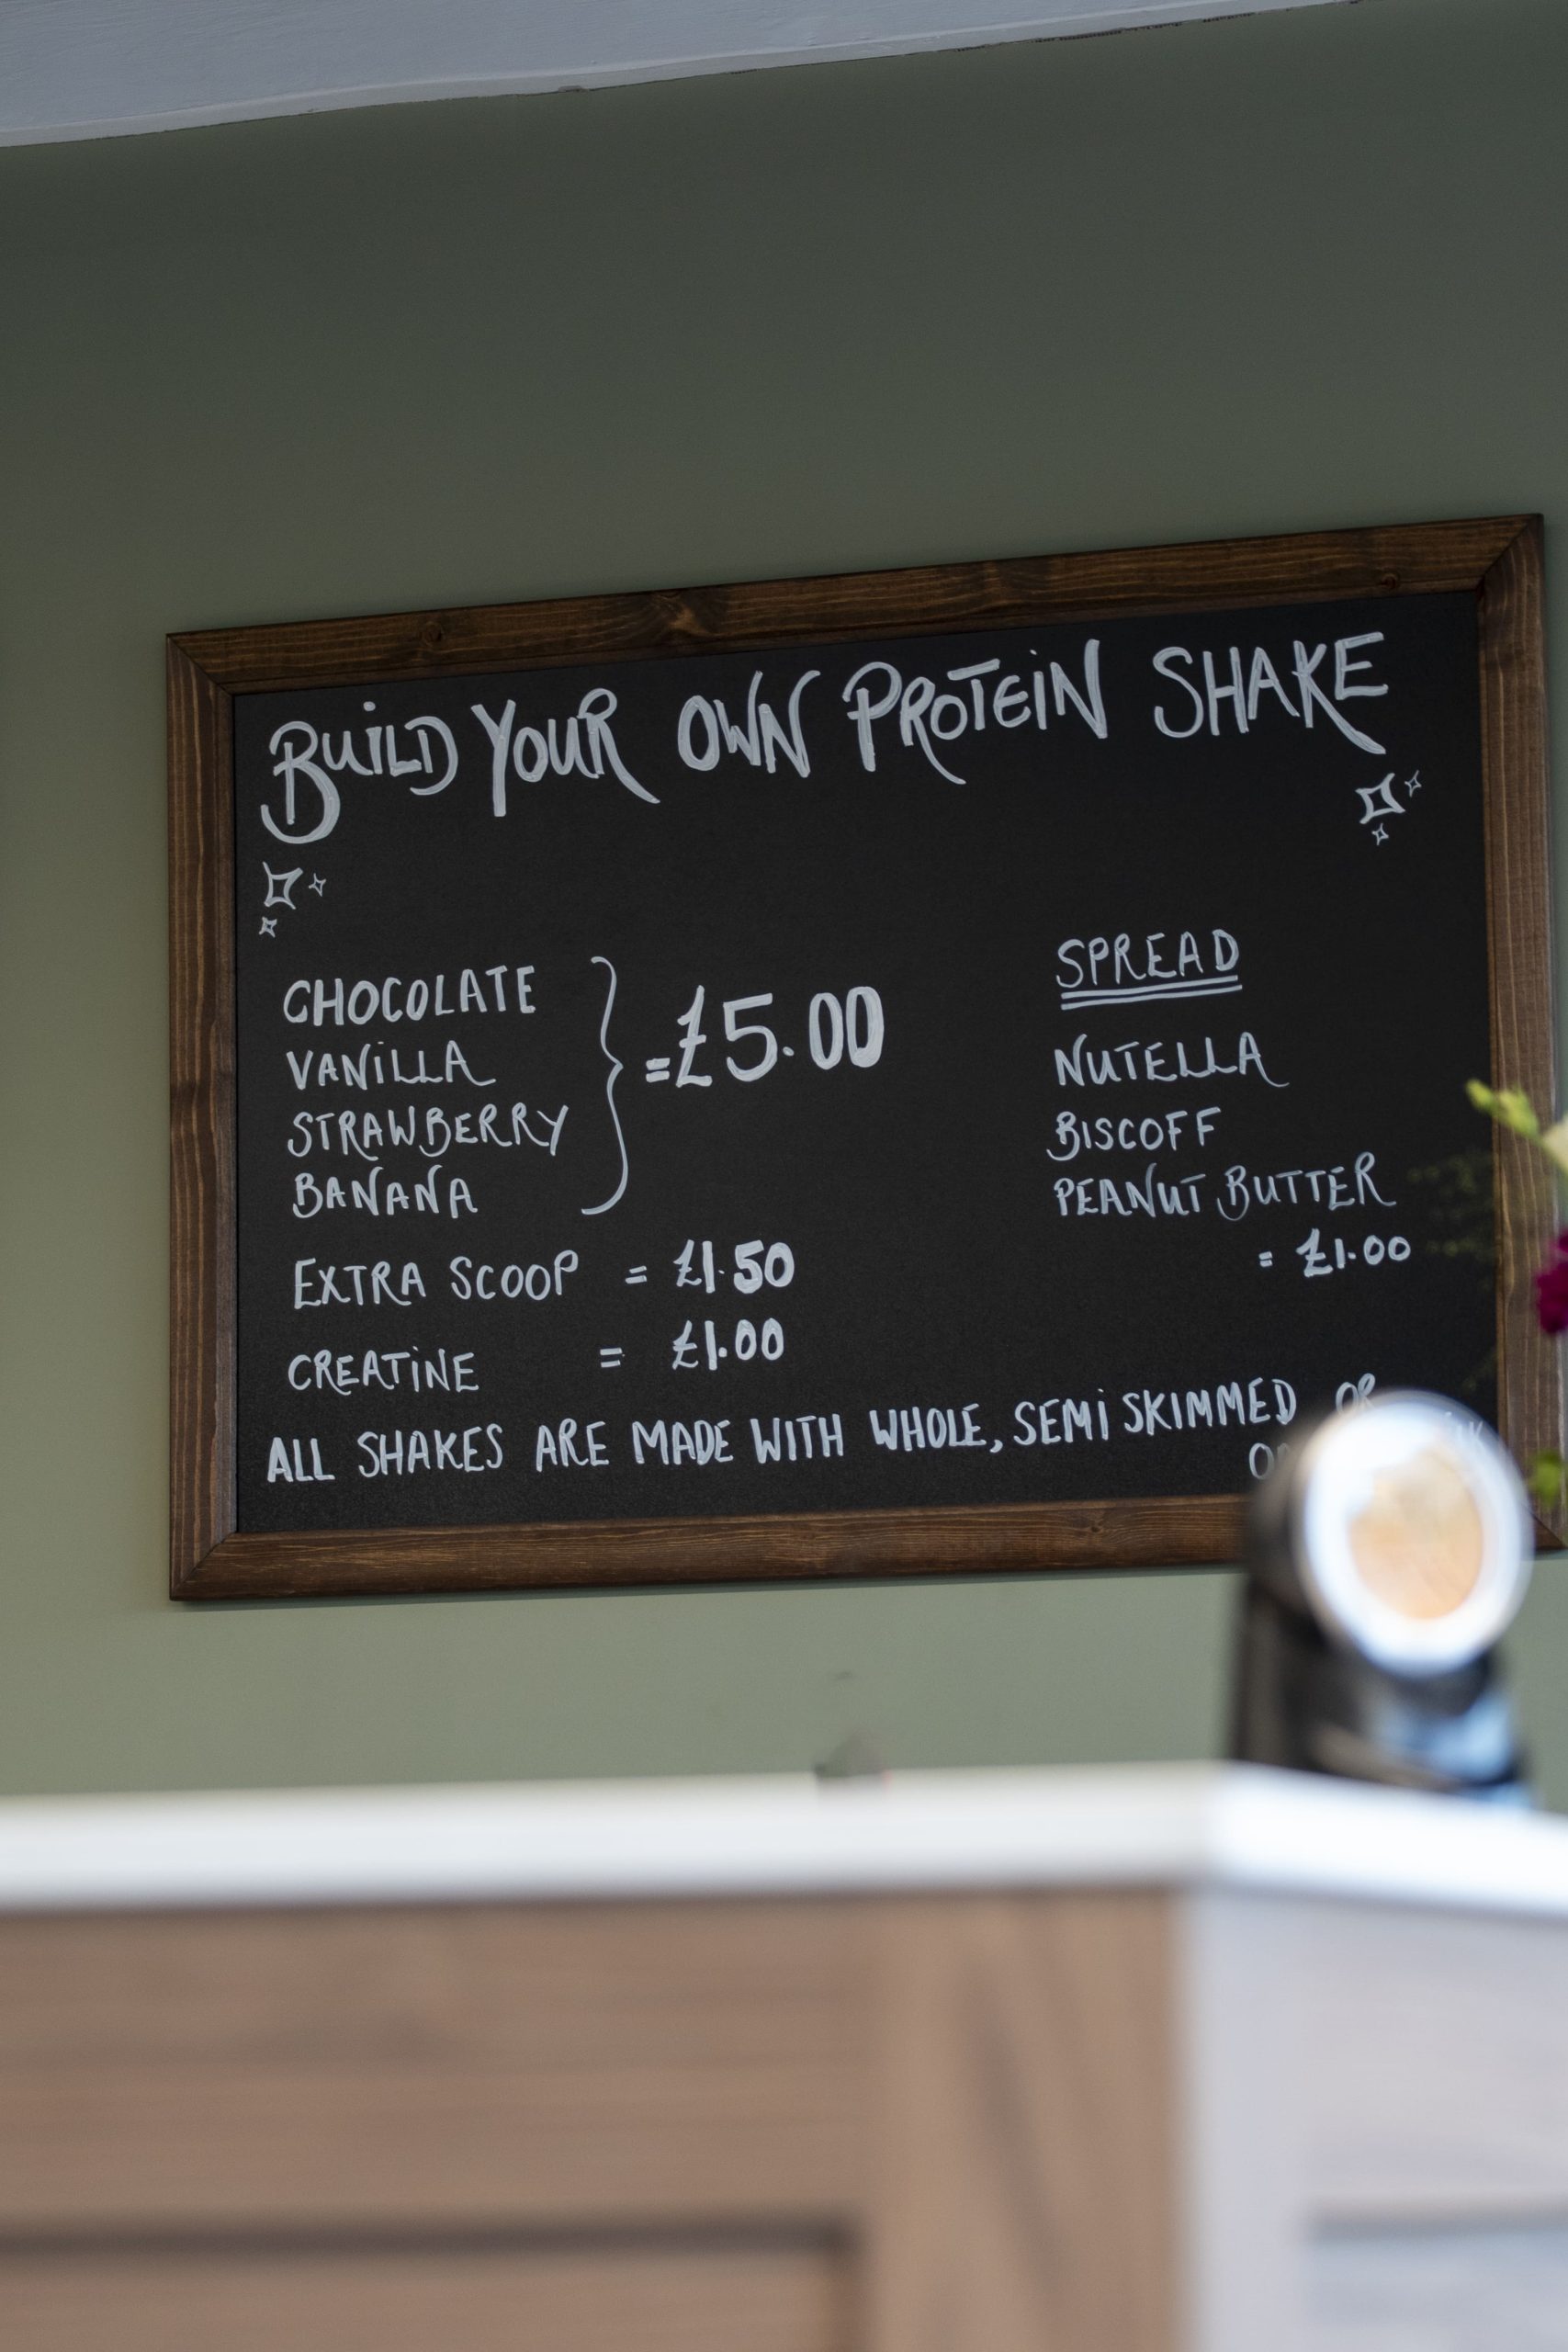 BUILD YOUR OWN PROTEIN SHAKE
CHOCOLATE
VANILLA
STRAWBERRY
BANANA
= £5.00
EXTRA SCOOP = £1.50
CREATINE = £1.00
SPREAD
NUTELLA
BISCOFF
PEANUT BUTTER
= £1.00
ALL SHAKES ARE MADE WITH WHOLE, SEMI SKIMMED OR